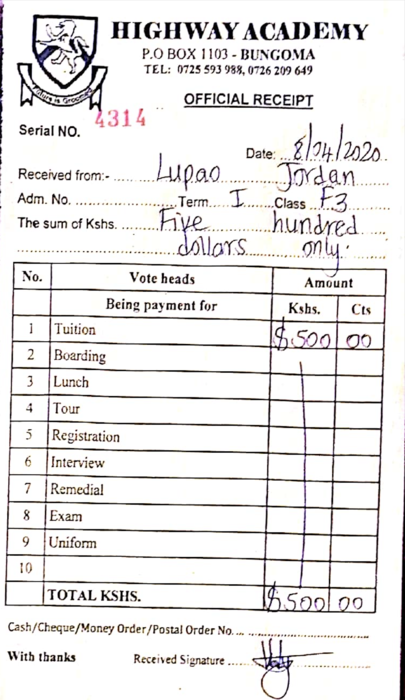 HIGHWAY ACADEMY
P.O BOX 1103 - BUNGOMA
TEL: 0725 593 988, 0726 209 649
OFFICIAL RECEIPT
Serial NO. 4314
Date: 8/04/2020
Received from:- Lupao Jordan
Adm. No. Term I Class F3
The sum of Kshs. Five hundred
dollars only.
No. Vote heads Amount
Being payment for Kshs. Cts
1 Tuition $.500 00
2 Boarding
3 Lunch
4 Tour
5 Registration
6 Interview
7 Remedial
8 Exam
9 Uniform
10
TOTAL KSHS. $500 00
Cash/Cheque/Money Order/Postal Order No.
With thanks Received Signature